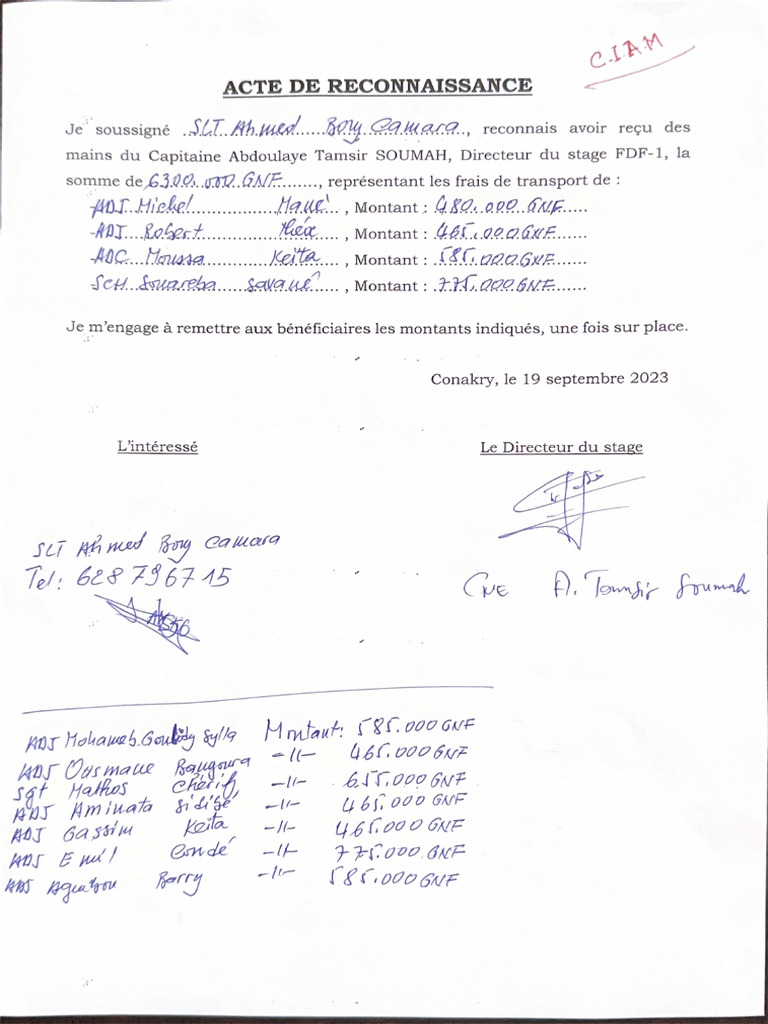 C.I.A.M
ACTE DE RECONNAISSANCE
Je soussigné ..SLT Ahmed......Bory Camara.., reconnais avoir reçu des
mains du Capitaine Abdoulaye Tamsir SOUMAH, Directeur du stage FDF-1, la
somme de 6300.000 GNF........, représentant les frais de transport de :
ADJ Michel Mané , Montant : 480.000 GNF......
ADJ Robert , Montant : 465.000 GNF......
ADC Moussa Keita , Montant : 585.000 GNF......
SCH Souareba Savané , Montant : 775.000 GNF......
Je m'engage à remettre aux bénéficiaires les montants indiqués, une fois sur place.
Conakry, le 19 septembre 2023
L'intéressé Le Directeur du stage
SLT Ahmed Bory Camara
Tel: 628 79 67 15
CNE A. Tamsir Soumah
ADJ Sylla Montant: 585.000 GNF
ADJ Ousmane Bangoura -//- 465.000 GNF
Sgt Mathos Chérif, -//- 655.000 GNF
ADJ Aminata Sidibé, -//- 465.000 GNF
ADJ Gassim Keita -//- 465.000 GNF
ADJ Emil Condé -//- 775.000 GNF
ADJ Barry -//- 585.000 GNF